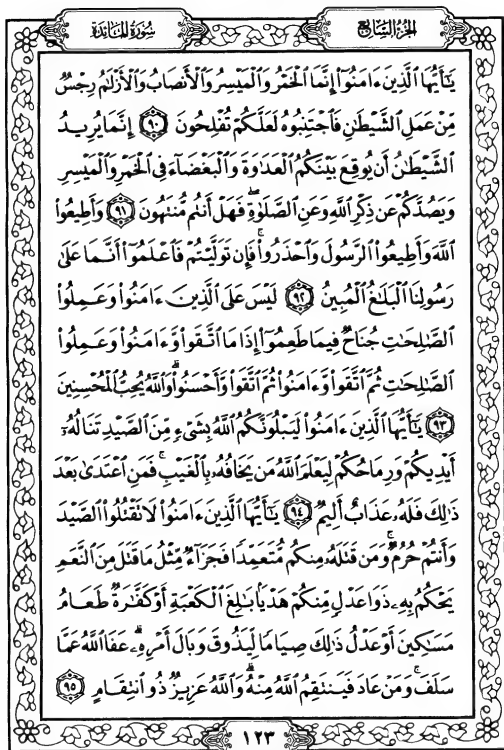 سُورَةُ المَائدة
الجُزءُ السَّابِعُ
يَٰٓأَيُّهَا ٱلَّذِينَ ءَامَنُوٓا۟ إِنَّمَا ٱلْخَمْرُ وَٱلْمَيْسِرُ وَٱلْأَنصَابُ وَٱلْأَزْلَٰمُ رِجْسٌ
مِّنْ عَمَلِ ٱلشَّيْطَٰنِ فَٱجْتَنِبُوهُ لَعَلَّكُمْ تُفْلِحُونَ ٩٠ إِنَّمَا يُرِيدُ
ٱلشَّيْطَٰنُ أَن يُوقِعَ بَيْنَكُمُ ٱلْعَدَٰوَةَ وَٱلْبَغْضَآءَ فِى ٱلْخَمْرِ وَٱلْمَيْسِرِ
وَيَصُدَّكُمْ عَن ذِكْرِ ٱللَّهِ وَعَنِ ٱلصَّلَوٰةِ ۖ فَهَلْ أَنتُم مُّنتَهُونَ ٩١ وَأَطِيعُوا۟
ٱللَّهَ وَأَطِيعُوا۟ ٱلرَّسُولَ وَٱحْذَرُوا۟ ۚ فَإِن تَوَلَّيْتُمْ فَٱعْلَمُوٓا۟ أَنَّمَا عَلَىٰ
رَسُولِنَا ٱلْبَلَٰغُ ٱلْمُبِينُ ٩٢ لَيْسَ عَلَى ٱلَّذِينَ ءَامَنُوا۟ وَعَمِلُوا۟
ٱلصَّٰلِحَٰتِ جُنَاحٌ فِيمَا طَعِمُوٓا۟ إِذَا مَا ٱتَّقَوا۟ وَّءَامَنُوا۟ وَعَمِلُوا۟
ٱلصَّٰلِحَٰتِ ثُمَّ ٱتَّقَوا۟ وَّءَامَنُوا۟ ثُمَّ ٱتَّقَوا۟ وَّأَحْسَنُوا۟ ۗ وَٱللَّهُ يُحِبُّ ٱلْمُحْسِنِينَ
٩٣ يَٰٓأَيُّهَا ٱلَّذِينَ ءَامَنُوا۟ لَيَبْلُوَنَّكُمُ ٱللَّهُ بِشَىْءٍ مِّنَ ٱلصَّيْدِ تَنَالُهُۥٓ
أَيْدِيكُمْ وَرِمَاحُكُمْ لِيَعْلَمَ ٱللَّهُ مَن يَخَافُهُۥ بِٱلْغَيْبِ ۚ فَمَنِ ٱعْتَدَىٰ بَعْدَ
ذَٰلِكَ فَلَهُۥ عَذَابٌ أَلِيمٌ ٩٤ يَٰٓأَيُّهَا ٱلَّذِينَ ءَامَنُوا۟ لَا تَقْتُلُوا۟ ٱلصَّيْدَ
وَأَنتُمْ حُرُمٌ ۚ وَمَن قَتَلَهُۥ مِنكُم مُّتَعَمِّدًا فَجَزَآءٌ مِّثْلُ مَا قَتَلَ مِنَ ٱلنَّعَمِ
يَحْكُمُ بِهِۦ ذَوَا عَدْلٍ مِّنكُمْ هَدْيًۢا بَٰلِغَ ٱلْكَعْبَةِ أَوْ كَفَّٰرَةٌ طَعَامُ
مَسَٰكِينَ أَوْ عَدْلُ ذَٰلِكَ صِيَامًا لِّيَذُوقَ وَبَالَ أَمْرِهِۦ ۗ عَفَا ٱللَّهُ عَمَّا
سَلَفَ ۚ وَمَنْ عَادَ فَيَنتَقِمُ ٱللَّهُ مِنْهُ ۗ وَٱللَّهُ عَزِيزٌ ذُو ٱنتِقَامٍ ٩٥
١٢٣